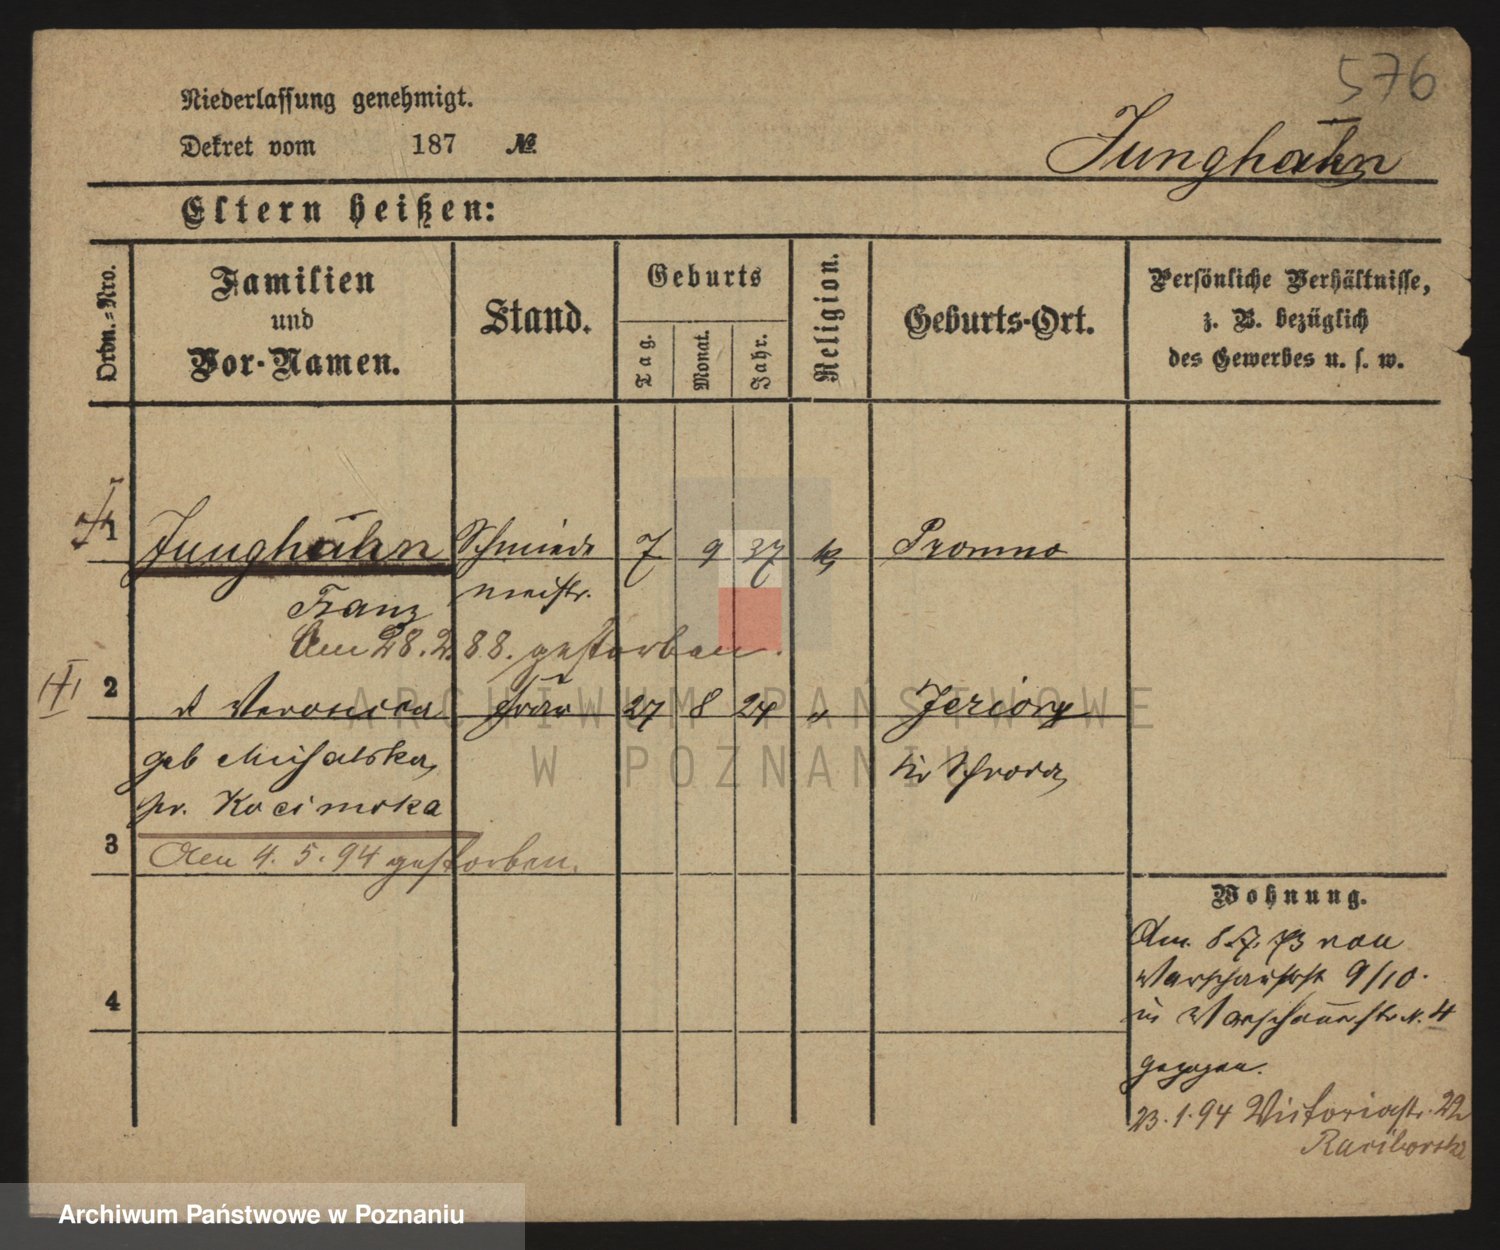 576
Niederlassung genehmigt.
Dekret vom 187 №
Junghähn
Eltern heißen:
Ordn.-Nro.
Familien
und
Vor-Namen.
Stand.
Geburts
Tag.
Monat.
Jahr.
Religion.
Geburts-Ort.
Persönliche Verhältnisse,
z. B. bezüglich
des Gewerbes u. s. w.
1 Junghähn Schmiede 7 9 37 k Promno
meistr.
Franz
Am 28.2.88. gestorben.
2 Veronica Frau 27 8 24 " Jeziory
geb
Kr Schroda
pr. Kocimska
3 Am 4.5.94 gestorben.
4
Wohnung.
Am 8.7.73 von
9/10.
in Warschauerstr N. 4
gezogen.
23.1.94 Victoriastr. 22
Raciborska
ARCHIWUM PAŃSTWOWE
W POZNANIU
Archiwum Państwowe w Poznaniu